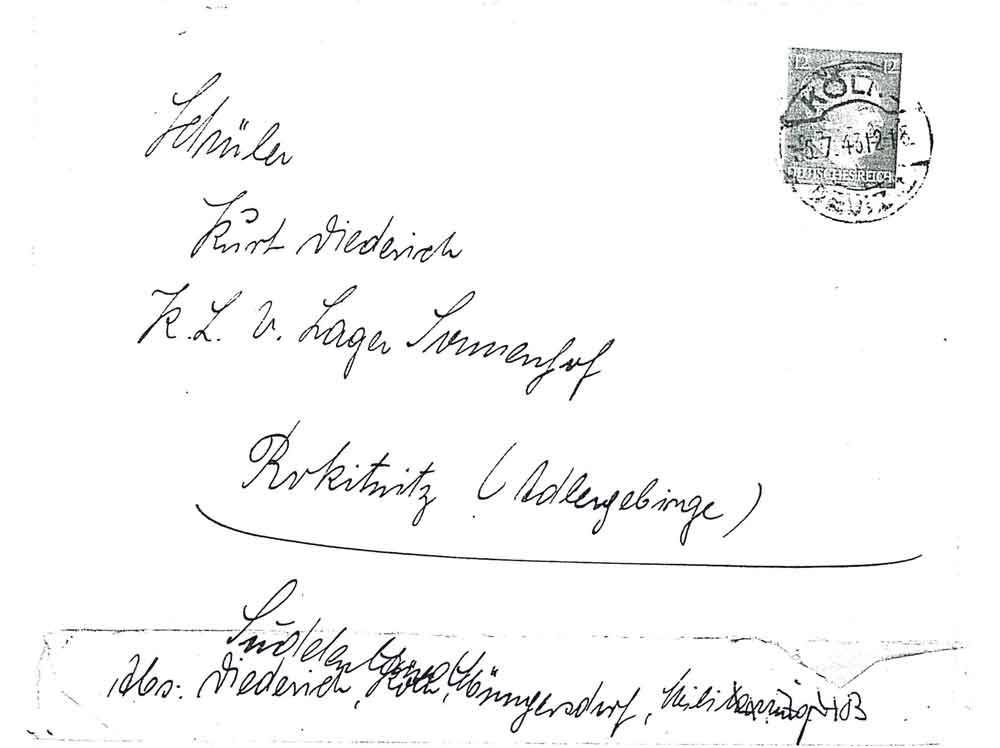 12 12
KÖLN
5.7.43.12-13
DEUTSCHES REICH
DEUTZ
Schüler
Kurt Diederich
K.L.V. Lager Sonnenhof
Rokitnitz (Adlergebirge)
Suddetenland
Abs. Diederich, Köln, Müngersdorf,